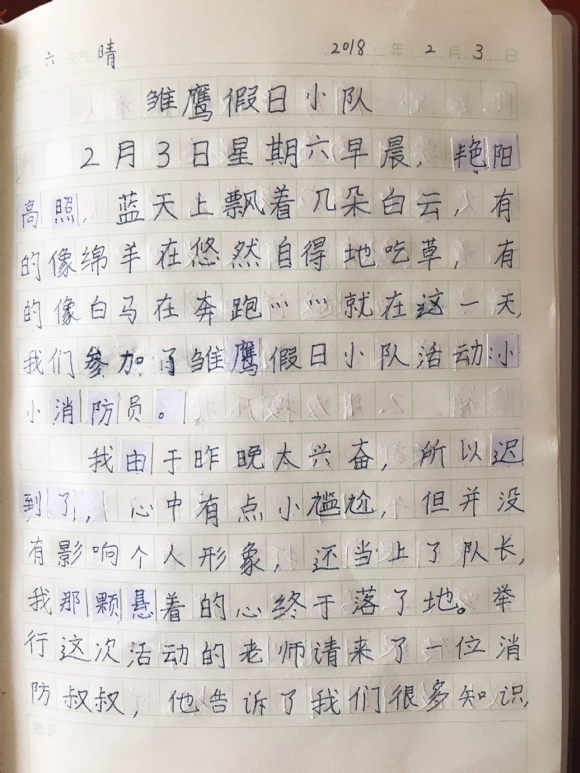 六 天气 晴 2018 年 2 月 3 日
雏鹰假日小队
2月3日星期六早晨，艳阳
高照，蓝天上飘着几朵白云，有
的像绵羊在悠然自得地吃草，有
的像白马在奔跑……就在这一天，
我们参加了雏鹰假日小队活动小
小消防员。
我由于昨晚太兴奋，所以迟
到了，心中有点小尴尬，但并没
有影响个人形象，还当上了队长，
我那颗悬着的心终于落了地。举
行这次活动的老师请来了一位消
防叔叔，他告诉了我们很多知识，